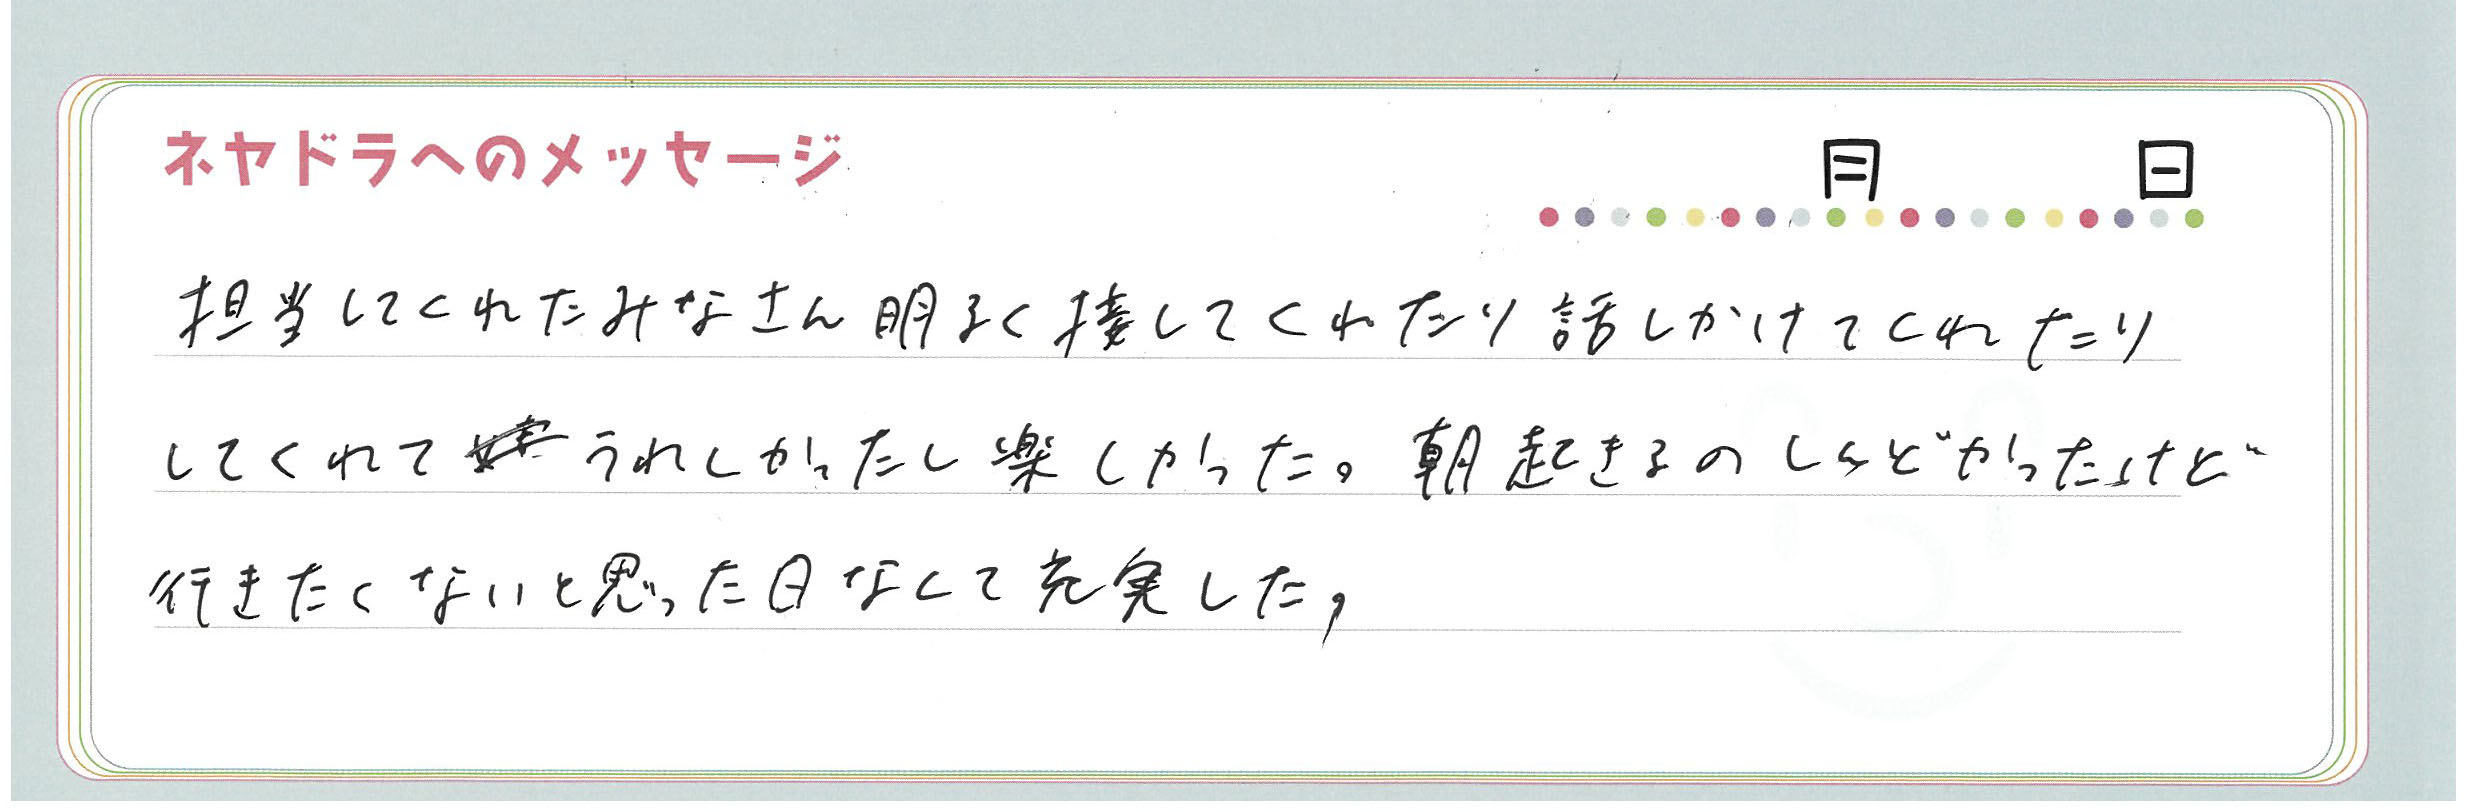 ネヤドラへのメッセージ
月 日
担当してくれたみなさん明るく接してくれたり話しかけてくれたり
してくれてうれしかったし楽しかった。朝起きるのしんどかったけど
行きたくないと思った日なくて充実した,